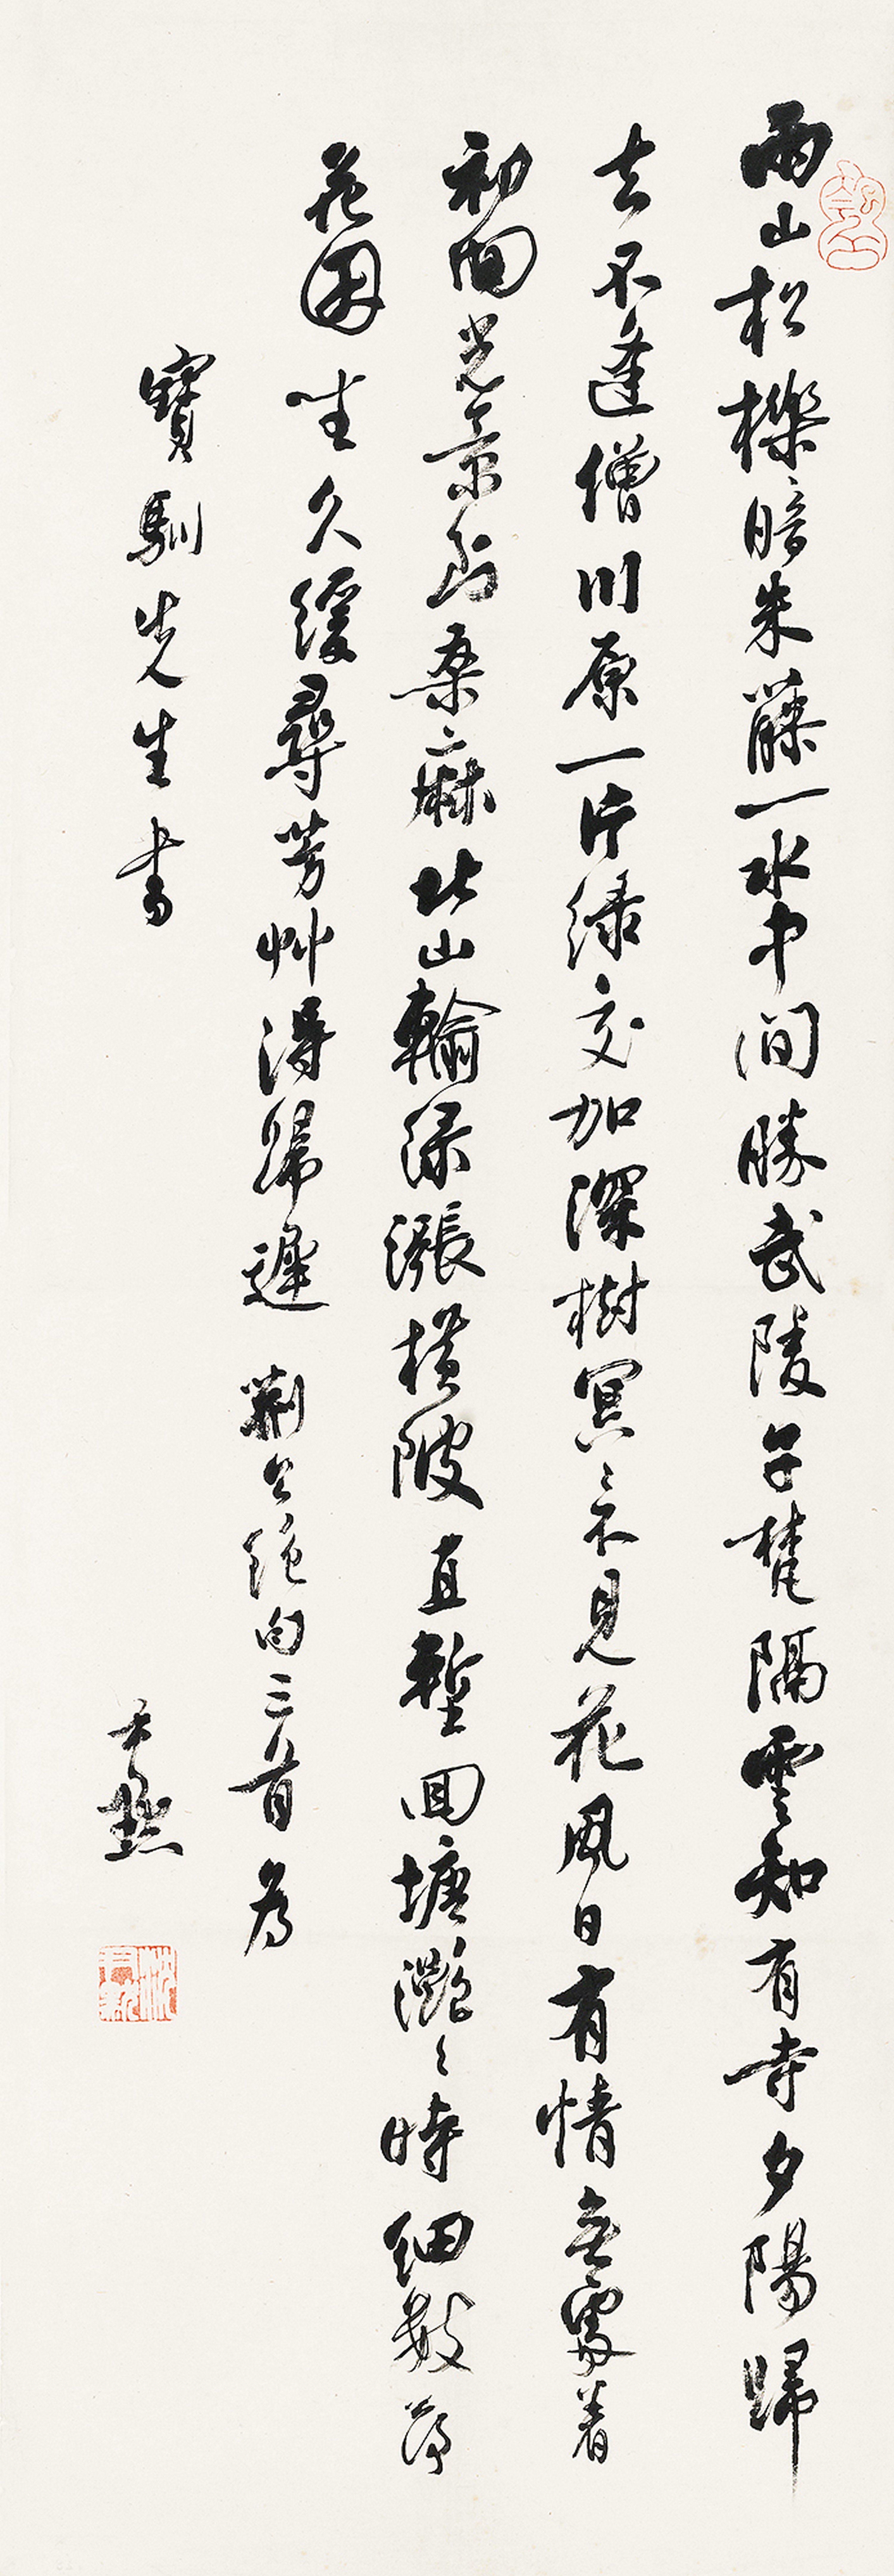 兩山松櫟暗朱藤一水中間勝武陵午梵隔雲知有寺夕陽歸
去不逢僧川原一片綠交加深樹冥々不見花風日有情無處着
初回光景到桑麻北山輸綠漲橫陂直塹回塘灧々時細數落
花因坐久緩尋芳艸得歸遲 荊公絕句三首為
寶馴先生書 尹默
沈尹默